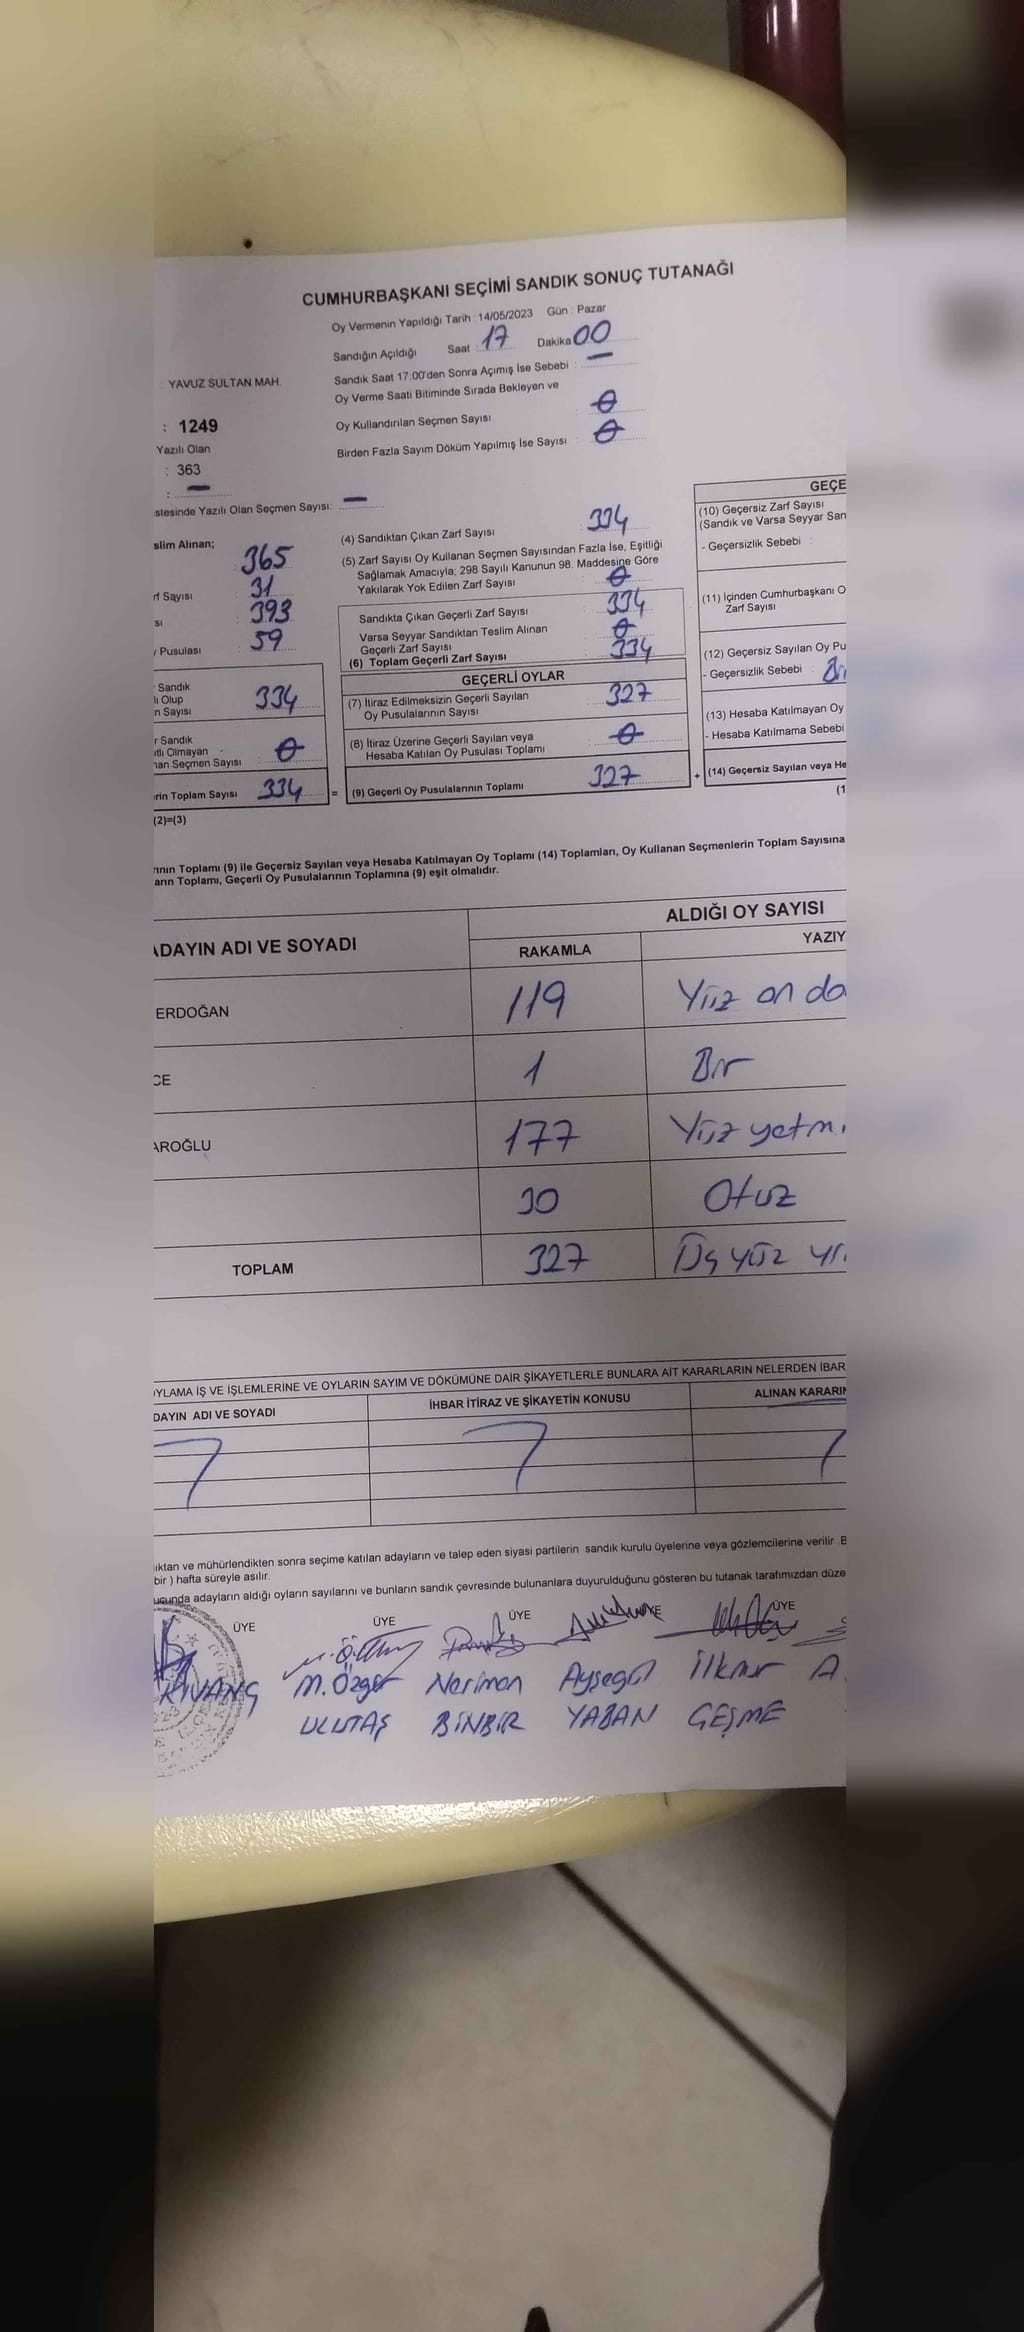 CUMHURBAŞKANI SEÇİMİ SANDIK SONUÇ TUTANAĞI
Oy Vermenin Yapıldığı Tarih : 14/05/2023 Gün : Pazar
Sandığın Açıldığı Saat 17 Dakika 00
Sandık Saat 17:00'den Sonra Açımış İse Sebebi : —
Oy Verme Saati Bitiminde Sırada Bekleyen ve
Oy Kullandırılan Seçmen Sayısı : 0
Birden Fazla Sayım Döküm Yapılmış İse Sayısı : 0
: YAVUZ SULTAN MAH.
: 1249
Yazılı Olan
: 363
: —
stesinde Yazılı Olan Seçmen Sayısı: —
slim Alınan;
365
rf Sayısı 31
sı 393
/ Pusulası 59
Sandık
lı Olup
n Sayısı 334
r Sandık
ıtlı Olmayan
nan Seçmen Sayısı 0
rin Toplam Sayısı 334
(2)=(3)
(4) Sandıktan Çıkan Zarf Sayısı 334
(5) Zarf Sayısı Oy Kullanan Seçmen Sayısından Fazla İse, Eşitliği
Sağlamak Amacıyla; 298 Sayılı Kanunun 98. Maddesine Göre
Yakılarak Yok Edilen Zarf Sayısı 0
Sandıkta Çıkan Geçerli Zarf Sayısı 334
Varsa Seyyar Sandıktan Teslim Alınan
Geçerli Zarf Sayısı 0
(6) Toplam Geçerli Zarf Sayısı 334
GEÇERLİ OYLAR
(7) İtiraz Edilmeksizin Geçerli Sayılan
Oy Pusulalarının Sayısı 327
(8) İtiraz Üzerine Geçerli Sayılan veya
Hesaba Katılan Oy Pusulası Toplamı 0
= (9) Geçerli Oy Pusulalarının Toplamı 327 +
GEÇE
(10) Geçersiz Zarf Sayısı
(Sandık ve Varsa Seyyar San
- Geçersizlik Sebebi :
(11) İçinden Cumhurbaşkanı O
Zarf Sayısı
(12) Geçersiz Sayılan Oy Pu
- Geçersizlik Sebebi :
(13) Hesaba Katılmayan Oy
- Hesaba Katılmama Sebebi
(14) Geçersiz Sayılan veya He
(1
nın Toplamı (9) ile Geçersiz Sayılan veya Hesaba Katılmayan Oy Toplamı (14) Toplamları, Oy Kullanan Seçmenlerin Toplam Sayısına
arın Toplamı, Geçerli Oy Pusulalarının Toplamına (9) eşit olmalıdır.
ADAYIN ADI VE SOYADI ALDIĞI OY SAYISI
RAKAMLA YAZIY
ERDOĞAN 119 Yüz on do
CE 1 Bir
AROĞLU 177 Yüz yetmi
30 Otuz
TOPLAM 327 Üç yüz yi
OYLAMA İŞ VE İŞLEMLERİNE VE OYLARIN SAYIM VE DÖKÜMÜNE DAİR ŞİKAYETLERLE BUNLARA AİT KARARLARIN NELERDEN İBAR
DAYIN ADI VE SOYADI İHBAR İTİRAZ VE ŞİKAYETİN KONUSU ALINAN KARARIN
ıktan ve mühürlendikten sonra seçime katılan adayların ve talep eden siyasi partilerin sandık kurulu üyelerine veya gözlemcilerine verilir. B
bir ) hafta süreyle asılır.
ucunda adayların aldığı oyların sayılarını ve bunların sandık çevresinde bulunanlara duyurulduğunu gösteren bu tutanak tarafımızdan düze
ÜYE ÜYE ÜYE ÜYE ÜYE
KIVANÇ M. Özgür Neriman Ayşegül İlknur A.
ULUTAŞ BİNBİR YABAN GEŞME